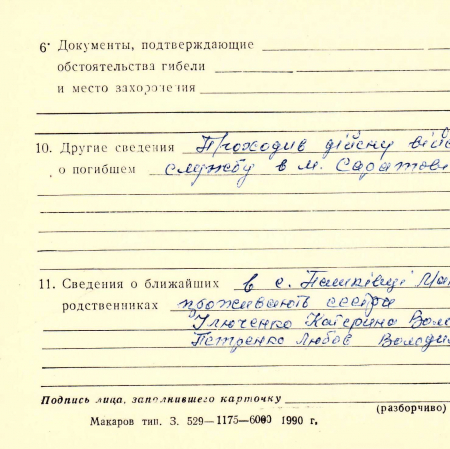 6. Документы, подтверждающие
обстоятельства гибели
и место захоронения
10. Другие сведения Проходив дійсну війс
о погибшем службу в м. Саратові
11. Сведения о ближайших в с. Пашківці Ма
родственниках проживають сестри
Ілюченко Катерина Воло
Петренко Любов Володи
Подпись лица, заполнившего карточку
(разборчиво)
Макаров тип. З. 529—1175—6000 1990 г.